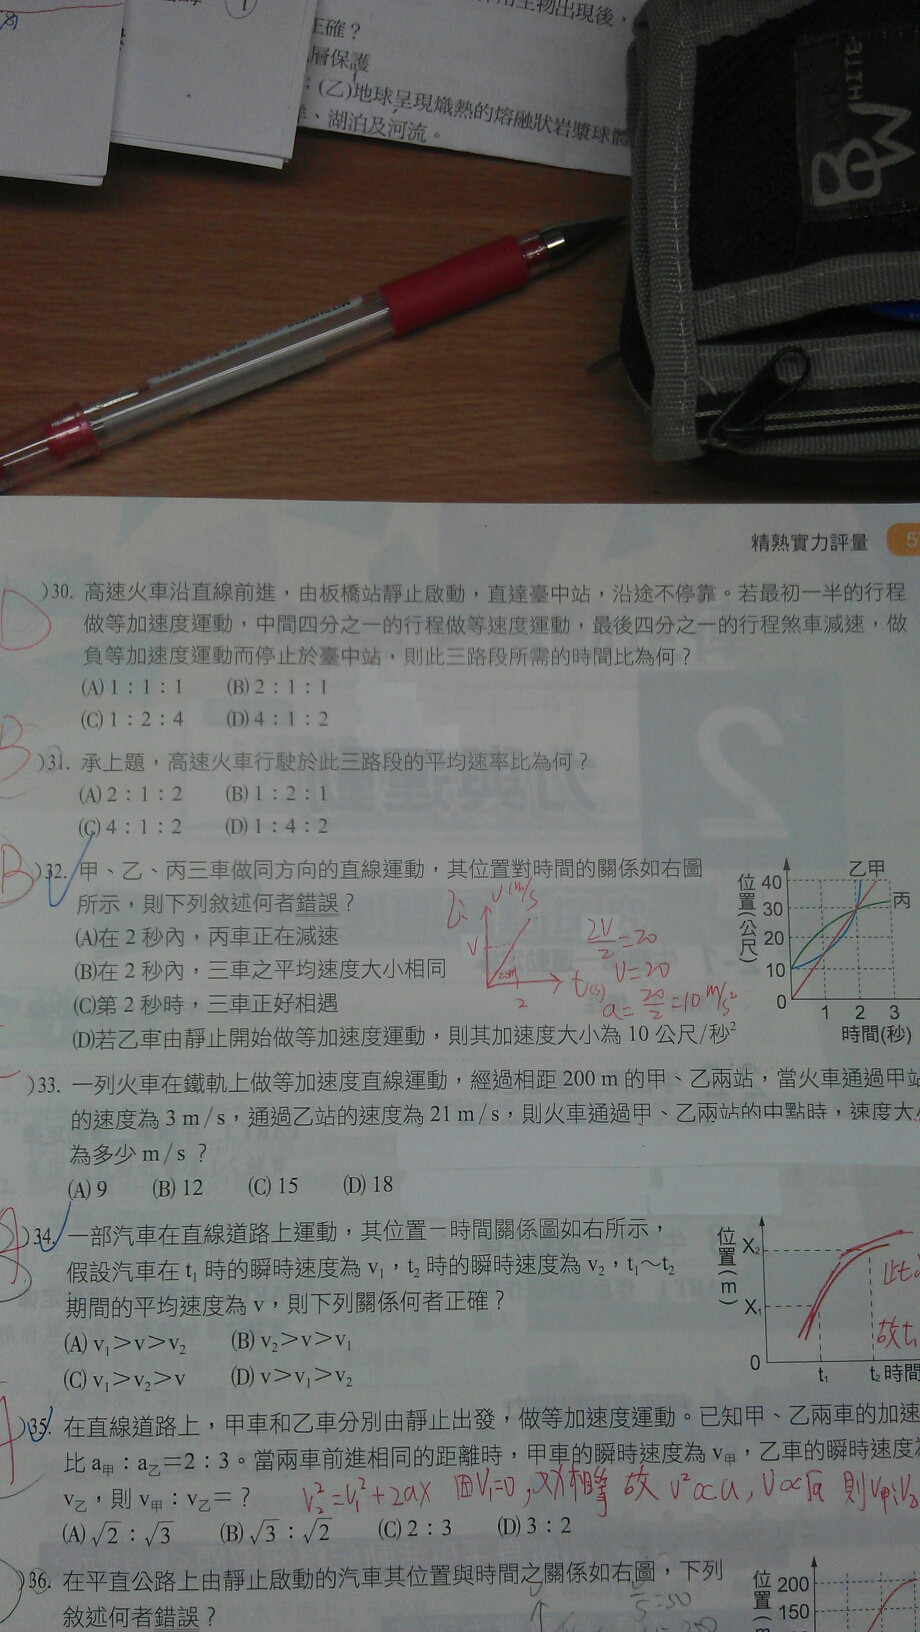 正確？
層保護
；(乙)地球呈現熾熱的熔融狀岩漿球體
、湖泊及河流。
WHITE
精熟實力評量
D )30. 高速火車沿直線前進，由板橋站靜止啟動，直達臺中站，沿途不停靠。若最初一半的行程
做等加速度運動，中間四分之一的行程做等速度運動，最後四分之一的行程煞車減速，做
負等加速度運動而停止於臺中站，則此三路段所需的時間比為何？
(A) 1：1：1 (B) 2：1：1
(C) 1：2：4 (D) 4：1：2
B )31. 承上題，高速火車行駛於此三路段的平均速率比為何？
(A) 2：1：2 (B) 1：2：1
(C) 4：1：2 (D) 1：4：2
B )32. 甲、乙、丙三車做同方向的直線運動，其位置對時間的關係如右圖
所示，則下列敘述何者錯誤？
(A)在 2 秒內，丙車正在減速
(B)在 2 秒內，三車之平均速度大小相同
(C)第 2 秒時，三車正好相遇
(D)若乙車由靜止開始做等加速度運動，則其加速度大小為 10 公尺/秒²
乙: v(m/s)
V
2
t(s)
2V/2=20
V=20
a=20/2=10 m/s²
位置(公尺)
乙甲
丙
40
30
20
10
0
1 2 3
時間(秒)
)33. 一列火車在鐵軌上做等加速度直線運動，經過相距 200 m 的甲、乙兩站，當火車通過甲站
的速度為 3 m / s，通過乙站的速度為 21 m / s，則火車通過甲、乙兩站的中點時，速度大小
為多少 m / s ？
(A) 9 (B) 12 (C) 15 (D) 18
)34. 一部汽車在直線道路上運動，其位置－時間關係圖如右所示，
假設汽車在 t₁ 時的瞬時速度為 v₁，t₂ 時的瞬時速度為 v₂，t₁～t₂
期間的平均速度為 v，則下列關係何者正確？
(A) v₁＞v＞v₂ (B) v₂＞v＞v₁
(C) v₁＞v₂＞v (D) v＞v₁＞v₂
位置(m)
X₂
X₁
0
t₁ t₂ 時間
此
故t₁
)35. 在直線道路上，甲車和乙車分別由靜止出發，做等加速度運動。已知甲、乙兩車的加速
比 a甲：a乙＝2：3。當兩車前進相同的距離時，甲車的瞬時速度為 v甲，乙車的瞬時速度為
v乙，則 v甲：v乙＝？
V₂²=V₁²+2aX 因V₁=0，X相等 故 V²∝a，V∝√a 則V甲:V乙
(A) √2：√3 (B) √3：√2 (C) 2：3 (D) 3：2
)36. 在平直公路上由靜止啟動的汽車其位置與時間之關係如右圖，下列
敘述何者錯誤？
位置(m
200
150